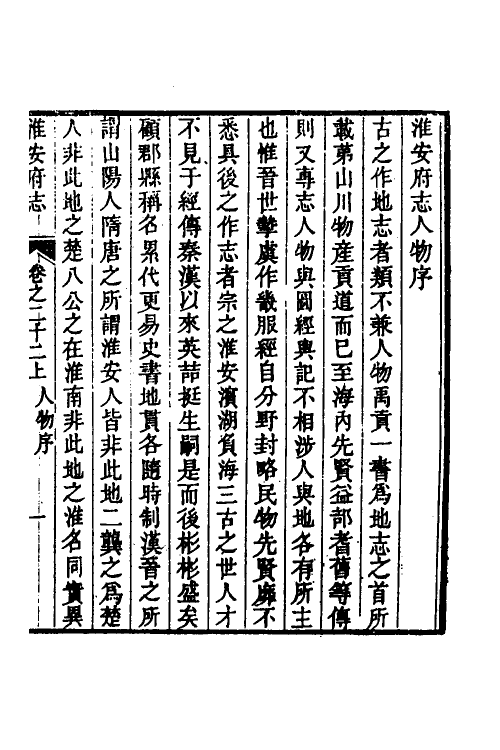 淮安府志人物序
古之作地志者類不兼人物禹貢一書爲地志之首所
載第山川物産貢道而已至海內先賢益部耆舊等傳
則又專志人物與圖經輿記不相涉人與地各有所主
也惟晉世摯虞作畿服經自分野封略民物先賢靡不
悉具後之作志者宗之淮安濱湖負海三古之世人才
不見于經傳秦漢以來英喆挺生嗣是而後彬彬盛矣
顧郡縣稱名累代更易史書地貫各隨時制漢晉之所
謂山陽人隋唐之所謂淮安人皆非此地二龔之爲楚
人非此地之楚八公之在淮南非此地之淮名同實異
淮安府志 卷之二十二上 人物序 一